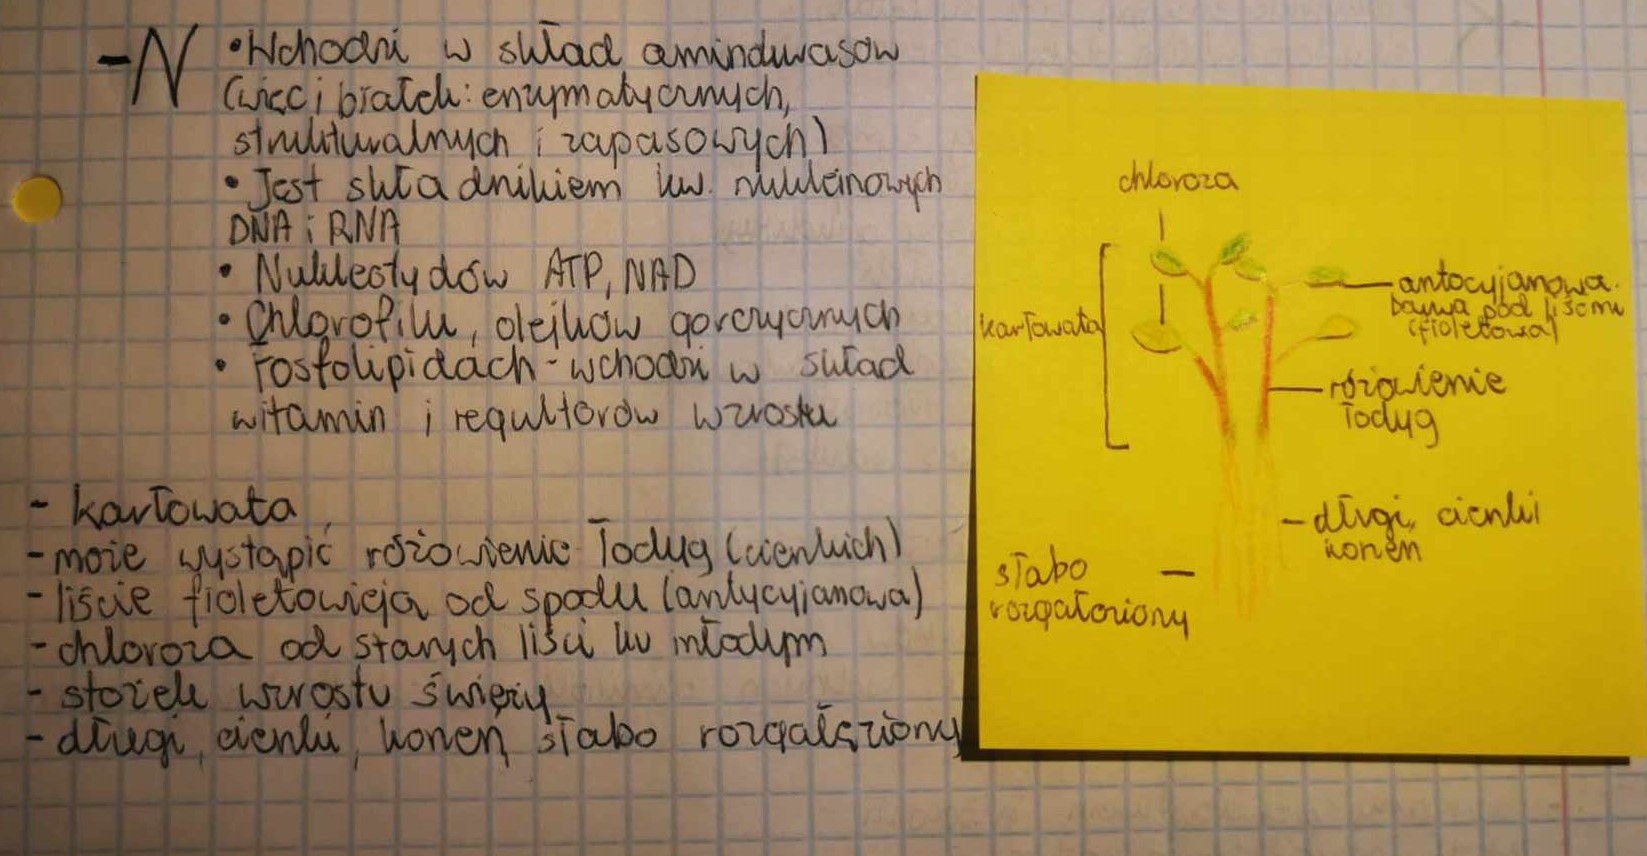 -N
• Wchodzi w skład aminokwasów
(więc i białek: enzymatycznych,
strukturalnych i zapasowych)
• Jest składnikiem kw. nukleinowych
DNA i RNA
• Nukleotydów ATP, NAD
• Chlorofilu, olejków gorczycznych
• Fosfolipidach - wchodzi w skład
witamin i regultorów wzrostu
- karłowata
- może wystąpić różowienie łodyg (cienkich)
- liście fioletowieją od spodu (antycyjanowa)
- chloroza od starych liści ku młodym
- stożek wzrostu świeży
- długi, cienki, korzeń słabo rozgałęziony
chloroza
karłowata
antocyjanowa
barwa pod liśćmi
(fioletowa)
różowienie
łodyg
- długi, cienki
korzeń
słabo
rozgałęziony